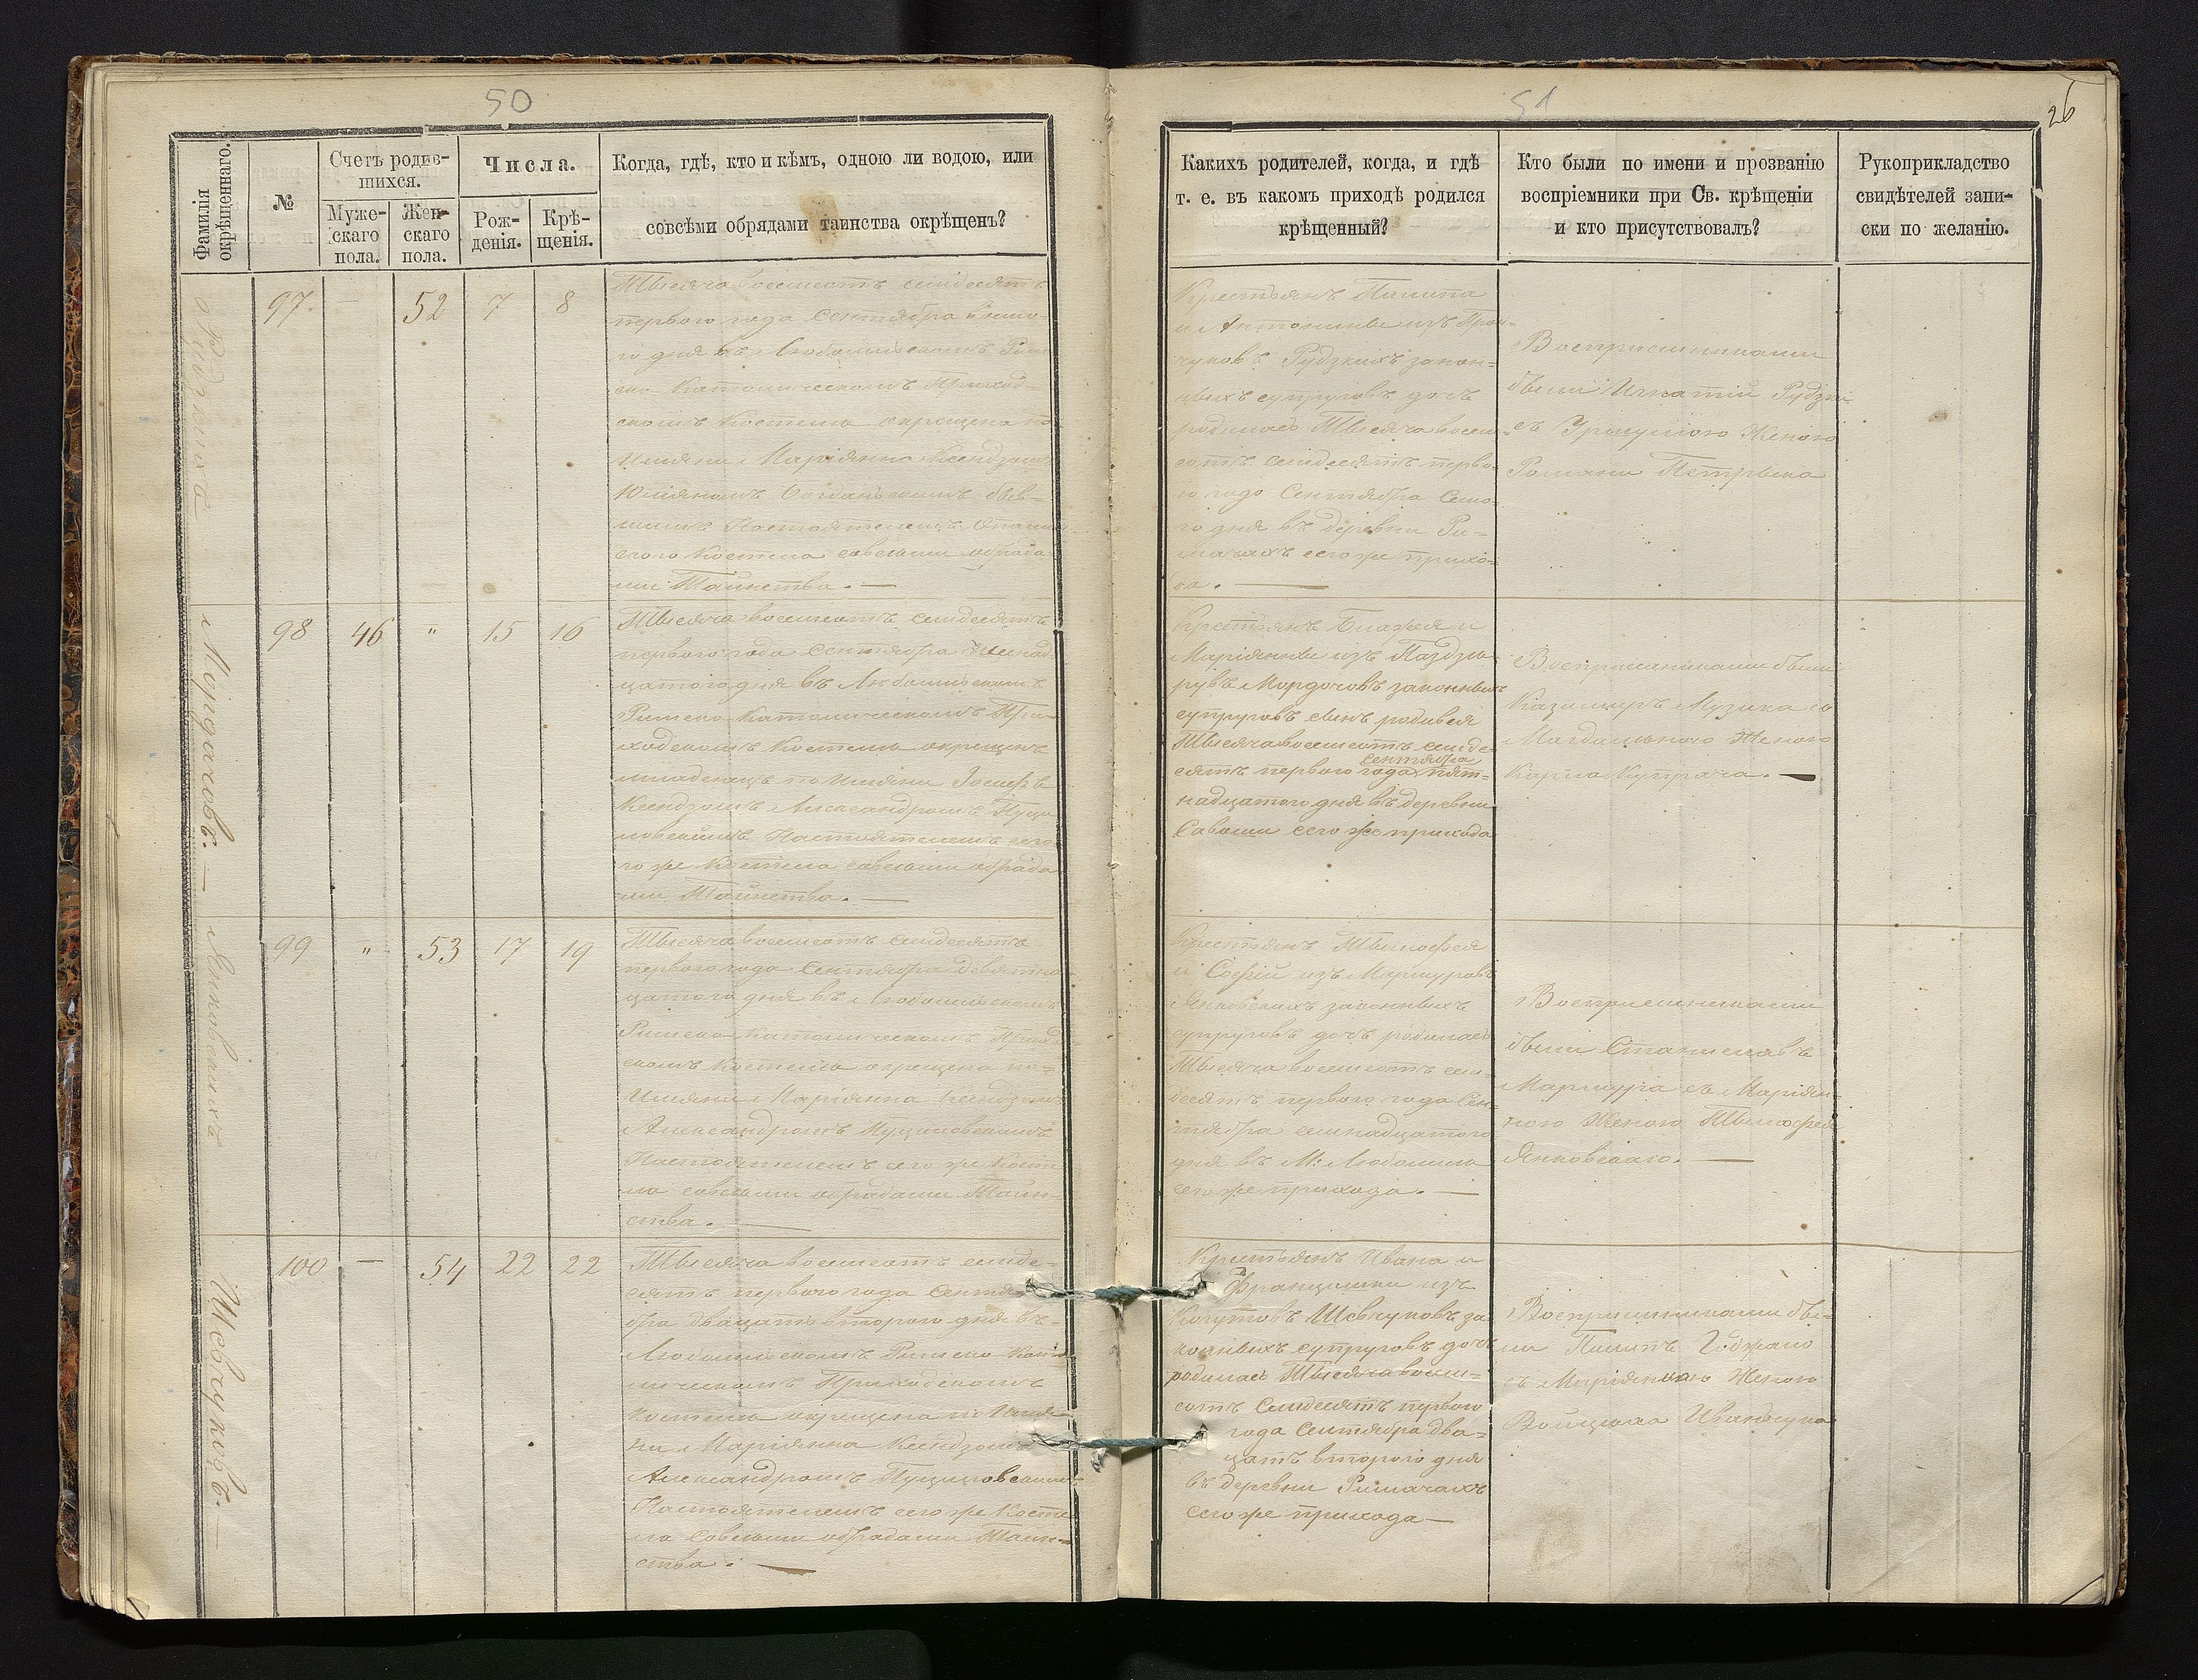 50
51
26
Фамилія
окрѣщеннаго.
№
Счетъ родив-
шихся.
Муже-
скаго
пола.
Жен-
скаго
пола.
Числа.
Рож-
денія.
Крѣ-
щенія.
Когда, гдѣ, кто и кѣмъ, одною ли водою, или
совсѣми обрядами таинства окрѣщенъ?
Какихъ родителей, когда, и гдѣ
т. е. въ какомъ приходѣ родился
крѣщенный?
Кто были по имени и прозванію
воспріемники при Св. крѣщеніи
и кто присутствовалъ?
Рукоприкладство
свидѣтелей запи-
ски по желанію.
97 — 52 7 8
Тысяча восемсотъ семдесятъ
перваго года Сентября восмо-
го дня въ Любомльскомъ Рим
ско Католическомъ Приход-
скомъ Костелѣ окрещена по
Имяни Маріянна Ксендзомъ
Юліяномъ быв-
шимъ Настоятелемъ
ского Костела совсѣми обряда
ми Таинства. —
Крестьянъ Пилипа
и Антонины изъ
Рудзкихъ закон-
ныхъ супруговъ дочь
родилась Тысяча восем-
сотъ семдесятъ перва-
го года Сентября Семо-
го дня въ деревни Ри-
мачахъ сего же прихо-
да. —
Воспріемниками
были Игнатій Рудзки
съ Уршулою Женою
Романа Петрыка
98 46 " 15 16
Мордачовъ. —
Тысяча восемсотъ семдесятъ
перваго года Сентября Шеснад
цатого дня въ Любомльскомъ
Римско Католическомъ При-
ходскомъ Костелѣ окрещенъ
младенецъ по Имяни Іосифъ
Ксендзомъ Александромъ
Настоятелемъ се-
го же Костела совсѣми обряда
ми Таинства. —
Крестьянъ Блажея и
Маріянны изъ Паздзю-
ровъ Мордачовъ законныхъ
супруговъ сынъ родився
Тысяча восемсотъ семде-
сентября
сятъ перваго года пят-
надцатого дня въ деревни
сего же прихода
Воспріемниками были
Казимиръ Музыка съ
Магдаленою Женою
Карла Купрача. —
99 " 53 17 19
Янковскихъ
Тысяча восемсотъ семдесятъ
перваго года Сентября девятна
цатого дня въ Любомльскомъ
Римско Католическомъ Приход
скомъ Костелѣ окрещена по-
Имяни Маріянна Ксендзомъ
Александромъ
Настоятелемъ сего же Косте
ла совсѣми обрядами Таин-
ства. —
Крестьянъ Тымофея
и Софіи изъ Марцуровъ
Янковскихъ законныхъ
супруговъ дочь родилась
Тысяча восемсотъ сем-
десятъ перваго года Сен-
тября семнадцатого
дня въ М: Любомлѣ
сего же прихода. —
Воспріемниками
были Станиславъ
Марцура съ Маріян-
ною Женою Тымофея
Янковскаго. —
100 — 54 22 22
Шевчуковъ. —
Тысяча восемсотъ семде-
сятъ перваго года Сентя
бря двацать второго дня въ-
Любомльскомъ Римско Като
лическомъ Приходскомъ
Костелѣ окрещена по Имя-
ни Маріянна Ксендзомъ
Александромъ
Настоятелемъ сего же Косте
ла Совсѣми обрядами Таин-
ства. —
Крестьянъ Ивана и
Францишки изъ
Когутовъ Шевчуковъ за-
конныхъ супруговъ дочь
родилась Тысяча восем-
сотъ Семдесятъ перваго
года Сентября два-
цать второго дня
въ деревни Римачахъ
сего же прихода —
Воспріемниками бы-
ли Пилипъ
съ Маріянною Женою
Войцеха Иванчука